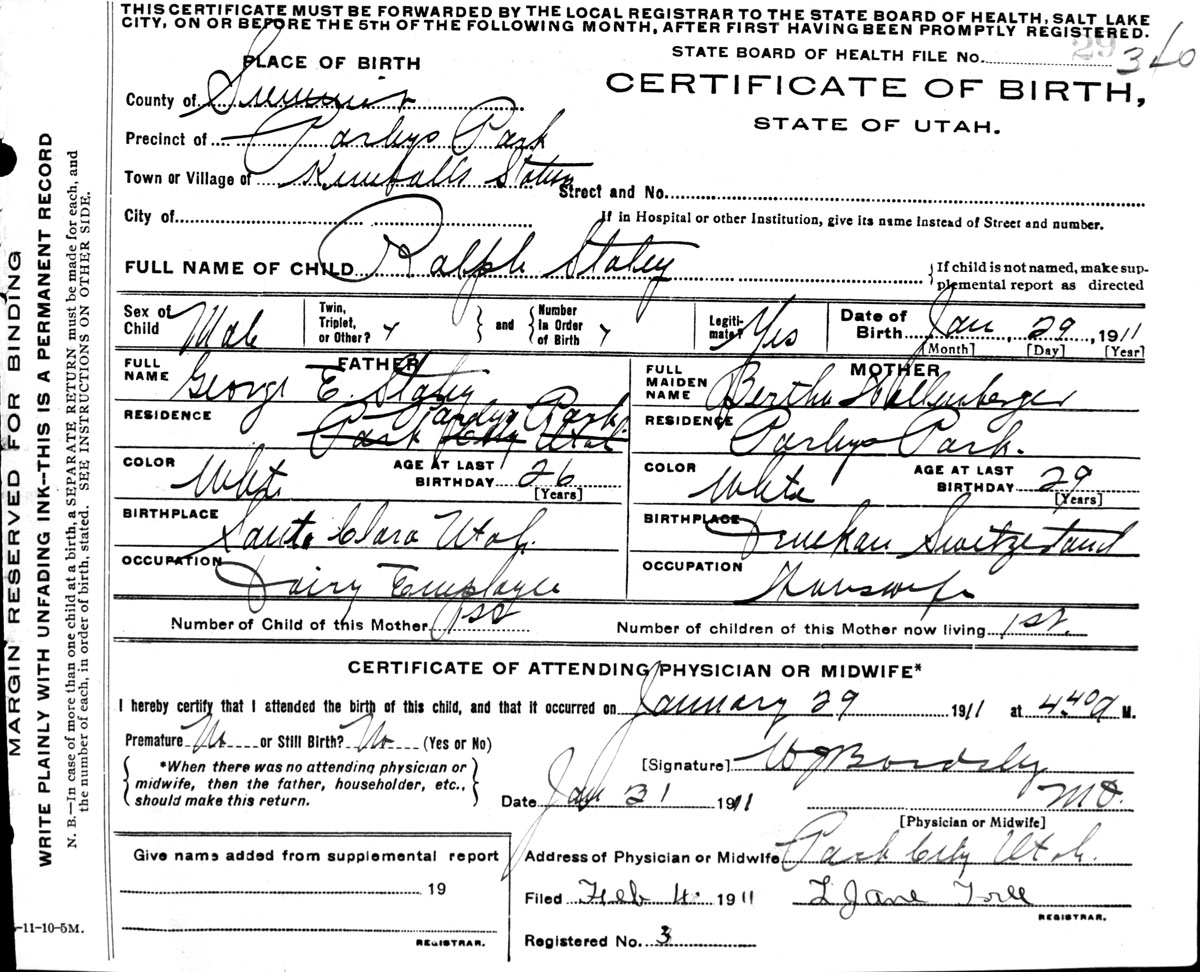 THIS CERTIFICATE MUST BE FORWARDED BY THE LOCAL REGISTRAR TO THE STATE BOARD OF HEALTH, SALT LAKE
CITY, ON OR BEFORE THE 5TH OF THE FOLLOWING MONTH, AFTER FIRST HAVING BEEN PROMPTLY REGISTERED.
STATE BOARD OF HEALTH FILE No. 29 340
PLACE OF BIRTH
CERTIFICATE OF BIRTH,
STATE OF UTAH.
County of Summit
Precinct of Parleys Park
Town or Village of Kimballs Station
Street and No.
City of
If in Hospital or other Institution, give its name instead of Street and number.
FULL NAME OF CHILD Ralph Staley
If child is not named, make supplemental report as directed
Sex of Child Male
Twin, Triplet, or Other?
and
Number in Order of Birth
Legitimate? Yes
Date of Birth Jan 29, 1911
[Month] [Day] [Year]
FATHER
FULL NAME George E. Staley
RESIDENCE Parleys Park
Park City Utah
COLOR White
AGE AT LAST BIRTHDAY 26
[Years]
BIRTHPLACE Santa Clara Utah.
OCCUPATION Dairy Employee
MOTHER
FULL MAIDEN NAME Bertha
RESIDENCE Parleys Park.
COLOR White
AGE AT LAST BIRTHDAY 29
[Years]
BIRTHPLACE Switzerland
OCCUPATION Housewife
Number of Child of this Mother 1st
Number of children of this Mother now living 1st.
CERTIFICATE OF ATTENDING PHYSICIAN OR MIDWIFE*
I hereby certify that I attended the birth of this child, and that it occurred on January 29 1911 at 4.40 a M.
Premature No or Still Birth? No (Yes or No)
*When there was no attending physician or
midwife, then the father, householder, etc.,
should make this return.
[Signature] W J Bardsley
MD.
Date Jan 31 1911
[Physician or Midwife]
Address of Physician or Midwife Park City Utah.
Give name added from supplemental report
19
REGISTRAR.
Filed Feb 4 1911 Jane
REGISTRAR.
Registered No. 3
MARGIN RESERVED FOR BINDING
WRITE PLAINLY WITH UNFADING INK—THIS IS A PERMANENT RECORD
N. B.—In case of more than one child at a birth, a SEPARATE RETURN must be made for each, and
the number of each, in order of birth, stated. SEE INSTRUCTIONS ON OTHER SIDE.
-11-10-5M.